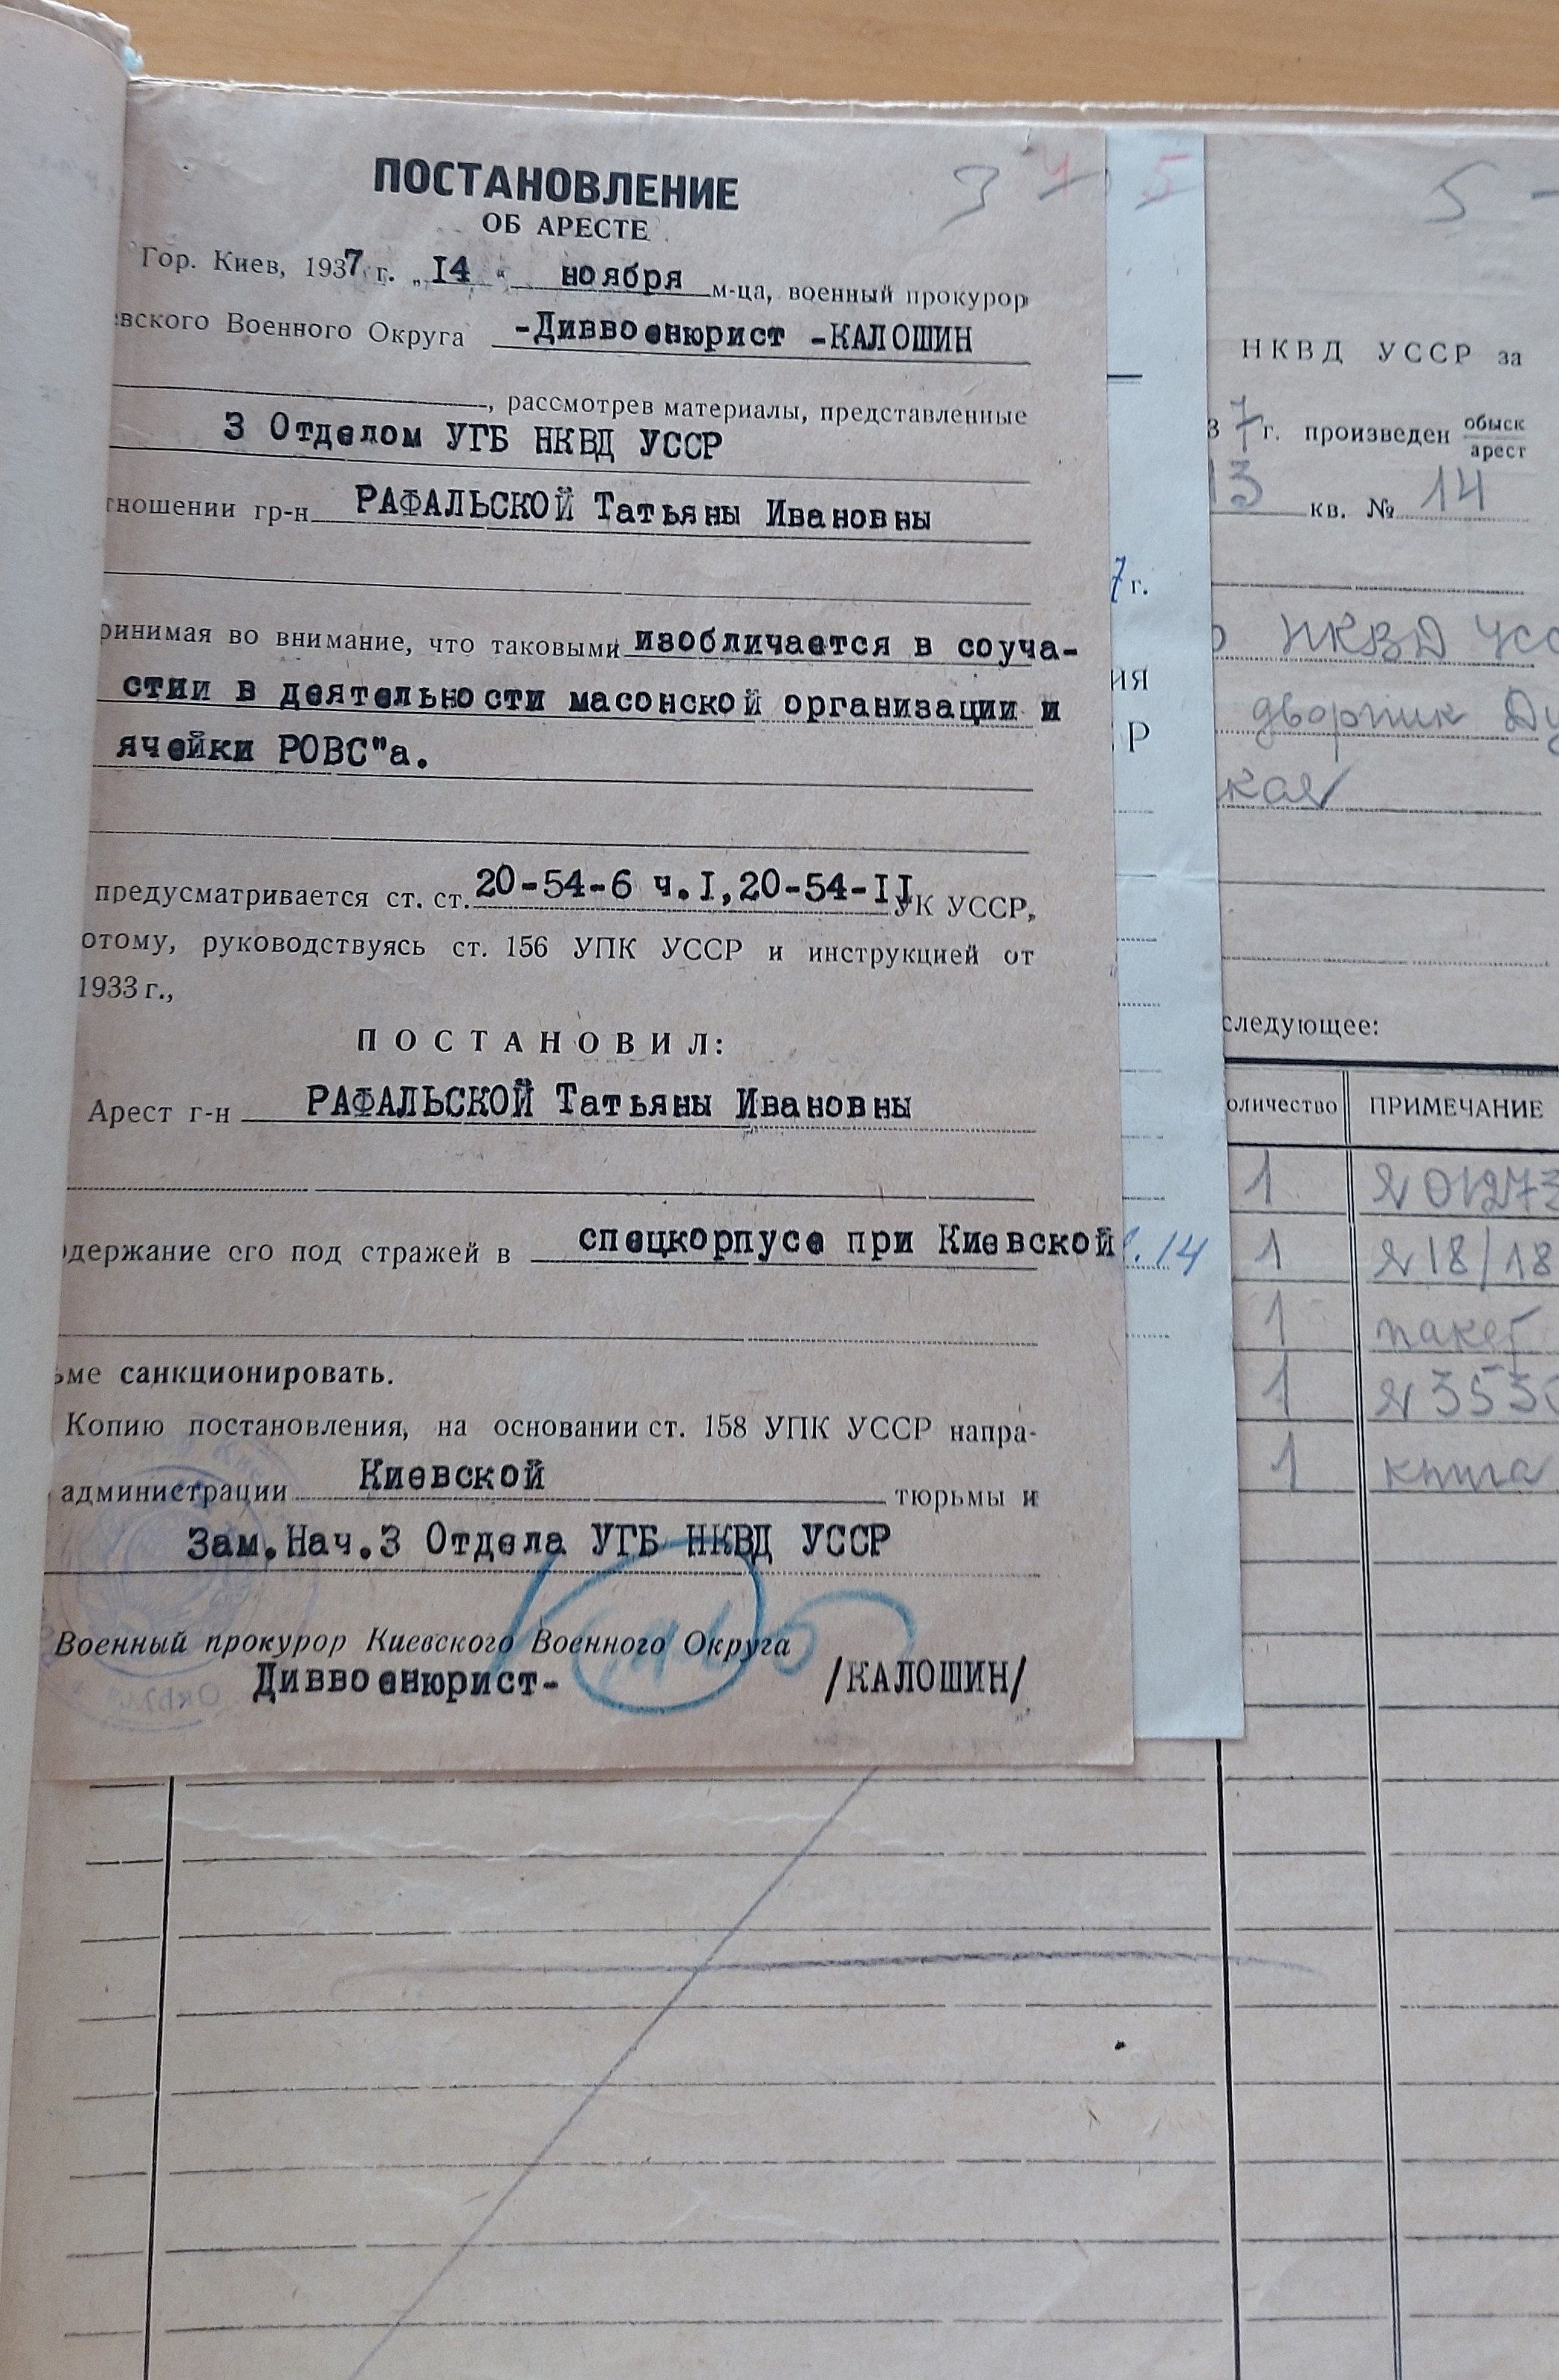 ПОСТАНОВЛЕНИЕ
ОБ АРЕСТЕ
3
5
Гор. Киев, 1937 г. „14 “ ноября м-ца, военный прокурор
евского Военного Округа -Диввоенюрист -КАЛОШИН
, рассмотрев материалы, представленные
3 Отделом УГБ НКВД УССР
тношении гр-н РАФАЛЬСКОЙ Татьяны Ивановны
ринимая во внимание, что таковыми изобличается в соуча-
стии в деятельности масонской организации и
ячейки РОВС"а.
предусматривается ст. ст. 20-54-6 ч.I,20-54-II УК УССР,
отому, руководствуясь ст. 156 УПК УССР и инструкцией от
1933 г.,
ПОСТАНОВИЛ:
Арест г-н РАФАЛЬСКОЙ Татьяны Ивановны
одержание его под стражей в спецкорпусе при Киевской
ьме санкционировать.
Копию постановления, на основании ст. 158 УПК УССР напра-
администрации Киевской тюрьмы и
Зам.Нач.3 Отдела УГБ НКВД УССР
Военный прокурор Киевского Военного Округа
Диввоенюрист- /КАЛОШИН/
7 г.
ия
Р
14
5 -
НКВД УССР за
37 г. произведен обыск
арест
13 кв. № 14
НКВД УСС
дворник Ду
кая
следующее:
оличество ПРИМЕЧАНИЕ
1 № 01273
1 № 18/18
1 пакет
1 № 3530
1 книга